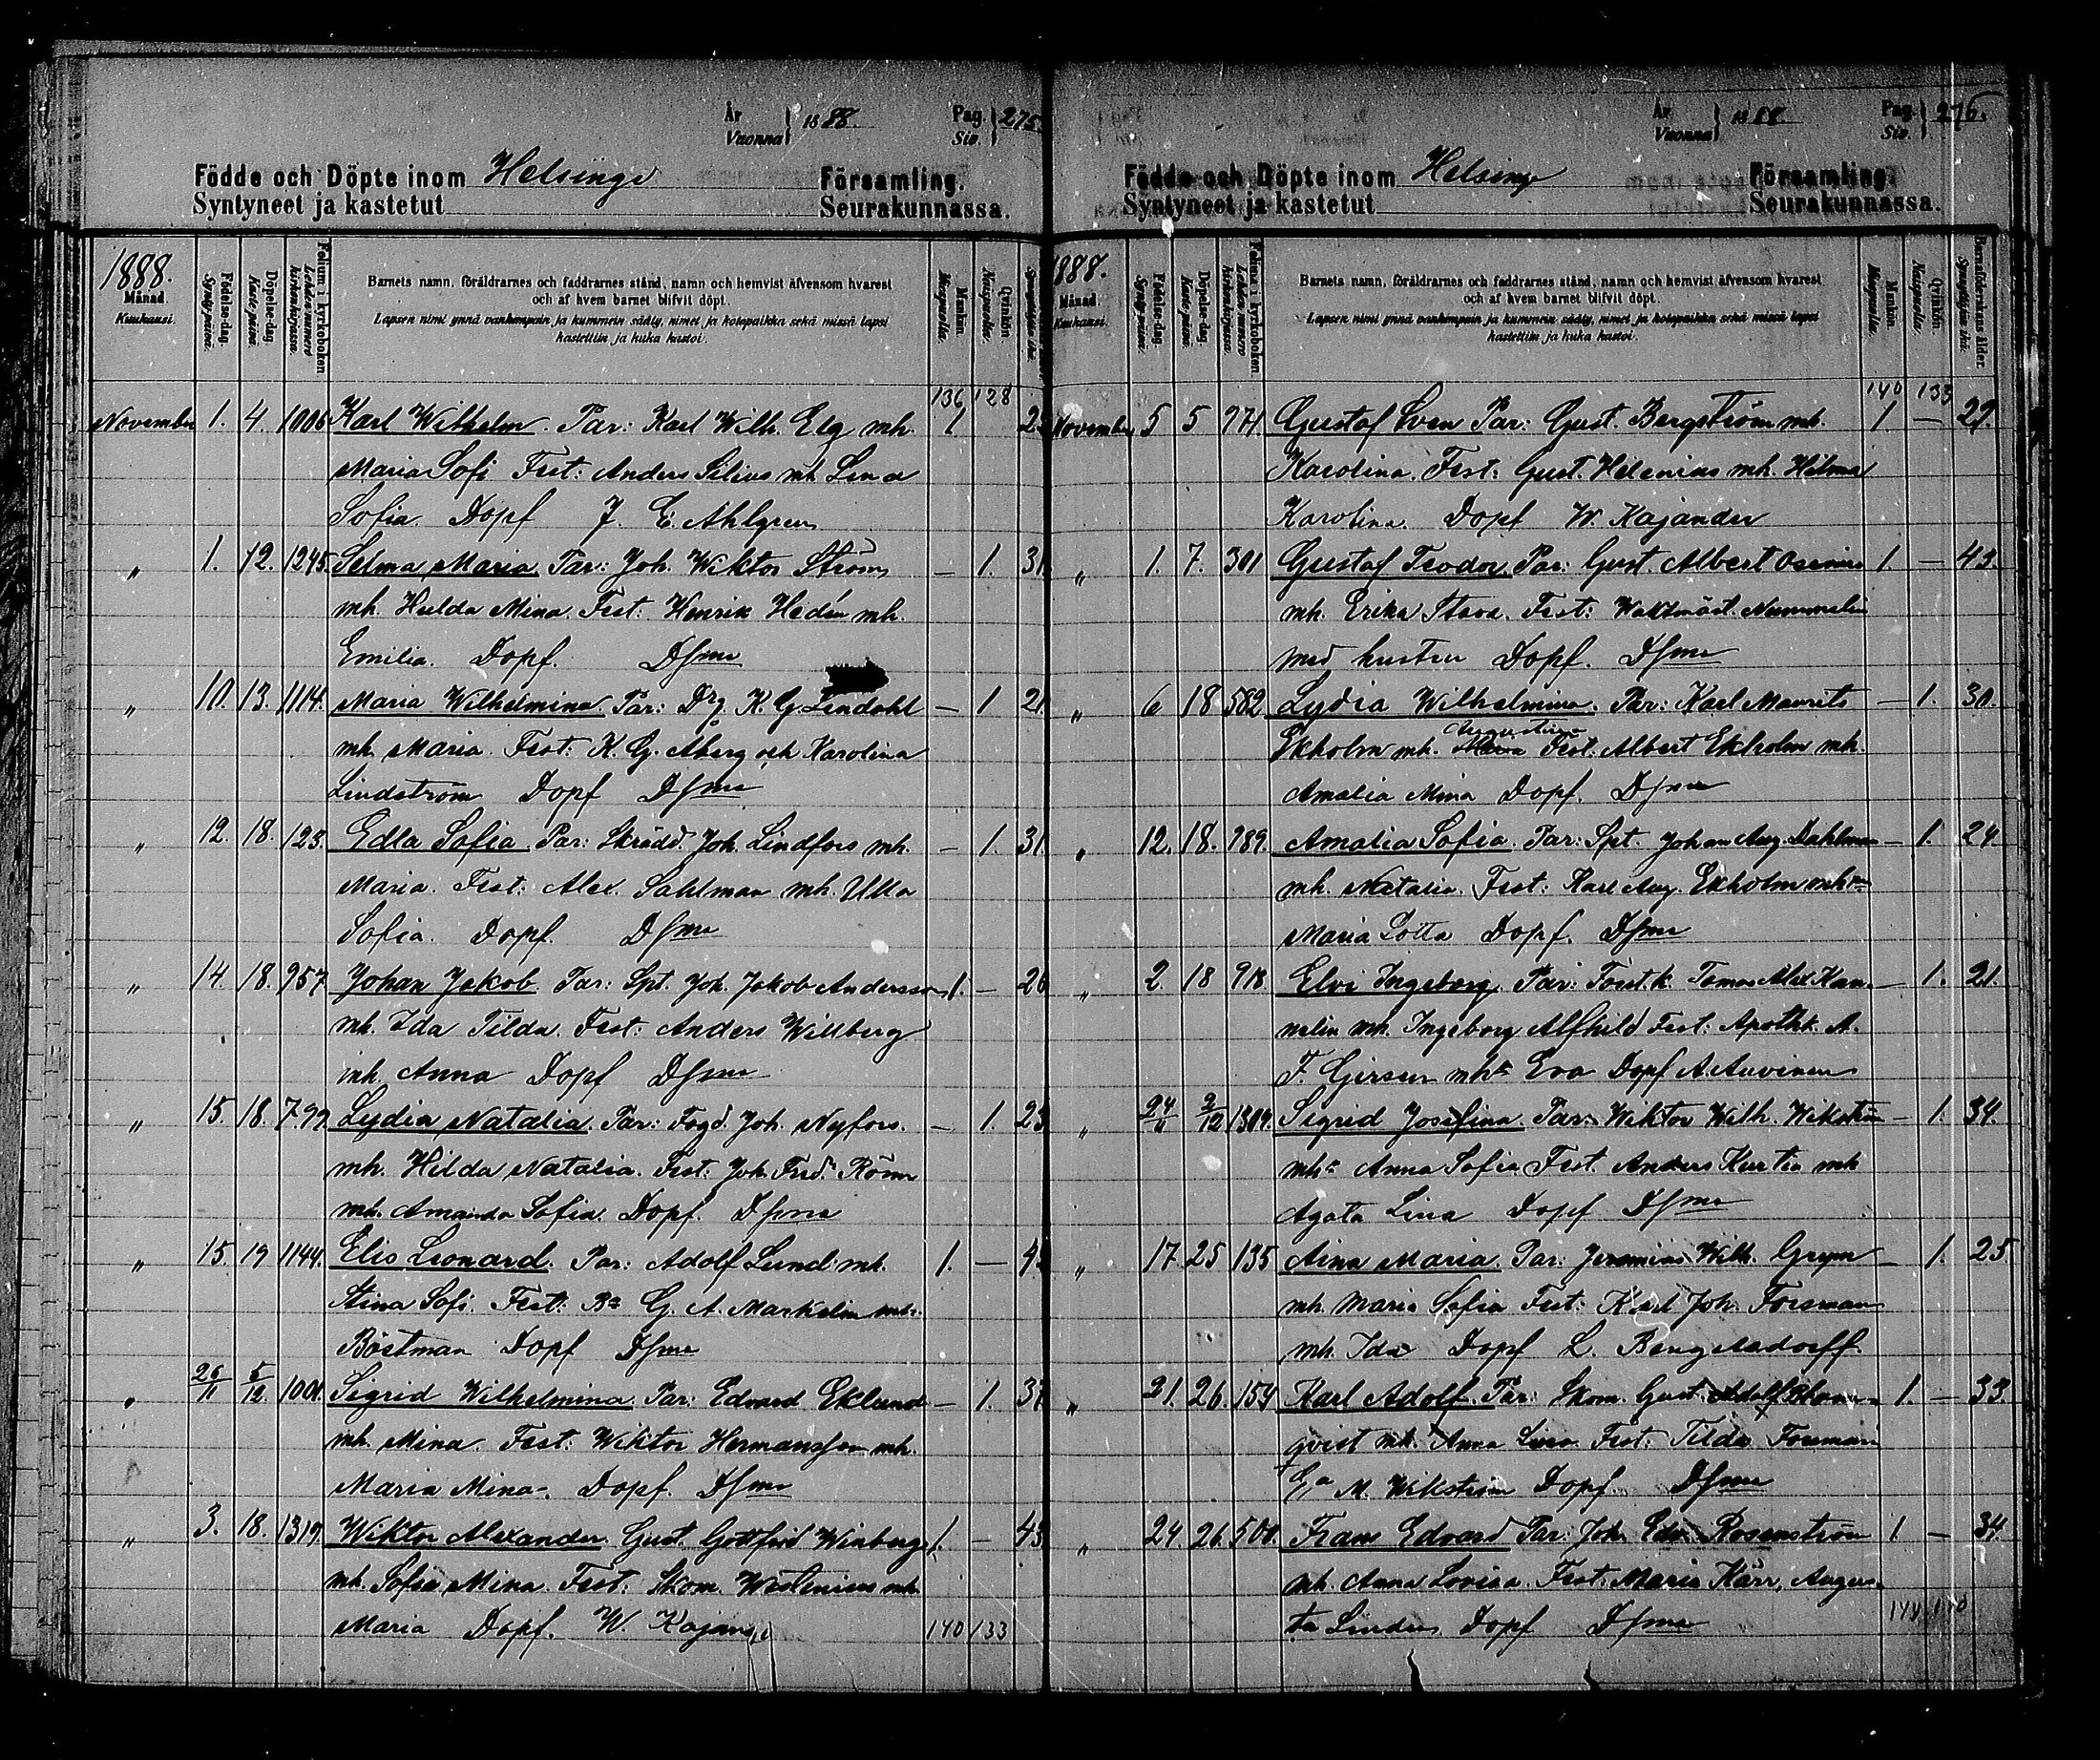 År Vuonna 1888. Pag. Siv. 275.
Födde och Döpte inom Helsinge Församling.
Syntyneet ja kastetut Seurakunnassa.
1888.
Månad. Kuukausi.
Födelse-dag. Syntymä-päivä.
Döpelse-dag. Kaste-päivä.
Folium i kyrkoboken
Barnets namn, föräldrarnes och faddrarnes stånd, namn och hemvist äfvensom hvarest
och af hvem barnet blifvit döpt.
Lapsen nimi ynnä vanhempain ja kummein sääty, nimet ja kotopaikka sekä missä lapsi
kastettiin ja kuka kastoi.
Mankön. Miespuolta.
Qvinkön. Naispuolta.
136 128
November 1. 4. 1006 Karl Wilhelm. Par: Karl Wilh. Elg mh. 1
Maria Sofi Fest: Anders Silius mh Lena
Sofia. Dopf J. E. Ahlgren
" 1. 12. 1245. Selma Maria. Par: Joh. Wiktor Ström — 1. 31
mh. Hulda Mina. Fest: Henrik Hedén mh.
Emilia. Dopf. Dsme
" 10. 13. 1114. Maria Wilhelmina. Par: Drg K. G. Lindahl — 1 21
mh. Maria. Fest: K. G. Åberg och Karolina
Lindström Dopf Dsme
" 12. 18. 123. Edla Sofia. Par: Skrädd. Joh. Lindfors mh. — 1. 31.
Maria. Fest: Alex. Sahlman mh. Ulla
Sofia. Dopf. Dsme
" 14. 18. 957 Johan Jakob. Par: Spt. Joh. Jakob Andersson 1. — 26
mh. Ida Tilda. Fest: Anders Willberg
mh. Anna Dopf Dsme
" 15. 18. 799 Lydia Natalia. Par: Fogd. Joh. Nyfors. — 1. 23
mh. Hilda Natalia. Fest: Joh. Fred. Röen
mh. Amanda Sofia. Dopf. Dsme
" 15. 19 1144. Elis Leonard. Par: Adolf Lund mh. 1. —
Stina Sofi. Fest: G. A. Markelin mh.
Böstman Dopf Dsme
" 26/11 5/12. 1001. Sigrid Wilhelmina. Par: Edvard Eklund — 1. 37
mh. Mina. Fest: Wiktor Hermansson mh.
Maria Mina. Dopf. Dsme
" 3. 18. 1319. Wiktor Alexander. Gust. Gottfrid Winberg 1. — 43
mh. Sofia Mina. Fest: Skom. Weslenius mh.
Maria Dopf. W. Kajand. 140 133
År Vuonna 1888. Pag. Siv. 276.
Födde och Döpte inom Helsinge Församling.
Syntyneet ja kastetut Seurakunnassa.
1888.
Månad. Kuukausi.
Födelse-dag. Syntymä-päivä.
Döpelse-dag. Kaste-päivä.
Folium i kyrkoboken.
Barnets namn, föräldrarnes och faddrarnes stånd, namn och hemvist äfvensom hvarest
och af hvem barnet blifvit döpt.
Lapsen nimi ynnä vanhempain ja kummein sääty, nimet ja kotopaikka sekä missä lapsi
kastettiin ja kuka kastoi.
Mankön. Miespuolta.
Qvinkön. Naispuolta.
Barnaföderskans ålder.
140 133
November 5 5 974 Gustaf Sven Par: Gust. Bergström mh. 1 — 29.
Karolina. Fest: Gust. Helenius mh. Hilma
Karolina. Dopf W. Kajander
" 1. 7. 301 Gustaf Teodor. Par: Gust. Albert 1. — 43.
mh. Erika Stava. Fest: Waktmäst. Nummelin
med hustru Dopf. Dsme
" 6 18 582 Lydia Wilhelmina. Par: Karl Maurits — 1. 30.
Augustina
Ekholm mh. Fest: Albert Ekholm mh.
Amalia Mina Dopf. Dsme
" 12. 18. 789. Amalia Sofia. Par: Spt. Johan Aug. Dahlman — 1. 24.
mh. Natalia. Fest: Karl Aug. Ekholm mh
Maria Lotta Dopf. Dsme
" 2. 18 918 Elvi Ingeborg. Par: Forst.k. Tomas Alex Kan- — 1. 21.
nelin mh. Ingeborg Alfhild Fest: Apothk. A.
F. Girsen mh Eva Dopf A. Auvinen
" 24/11 2/12 1304. Sigrid Josefina. Par: Wiktor Wilh. Wikström — 1. 34.
mh Anna Sofia Fest. Anders Kurtia mh
Agata Lina Dopf Dsme
" 17. 25 135 Aina Maria. Par: Jeremias Wilh. Grym — 1. 25.
mh. Maria Sofia Fest: Karl Joh. Forsman
mh. Ida Dopf L. Bengelsdorff.
" 21. 26. 154 Karl Adolf. Par: Skom. Gust. Adolf 1. — 33.
qvist mh. Anna Lovisa. Fest: Tilda Forsman
M. Wikström Dopf. Dsme
" 24. 26. 501. Frans Edvard Par: Joh. Edv. Rosenström 1. — 34.
mh. Anna Lovisa. Fest: Maria Kärr, Augus-
ta Linders Dopf Dsme